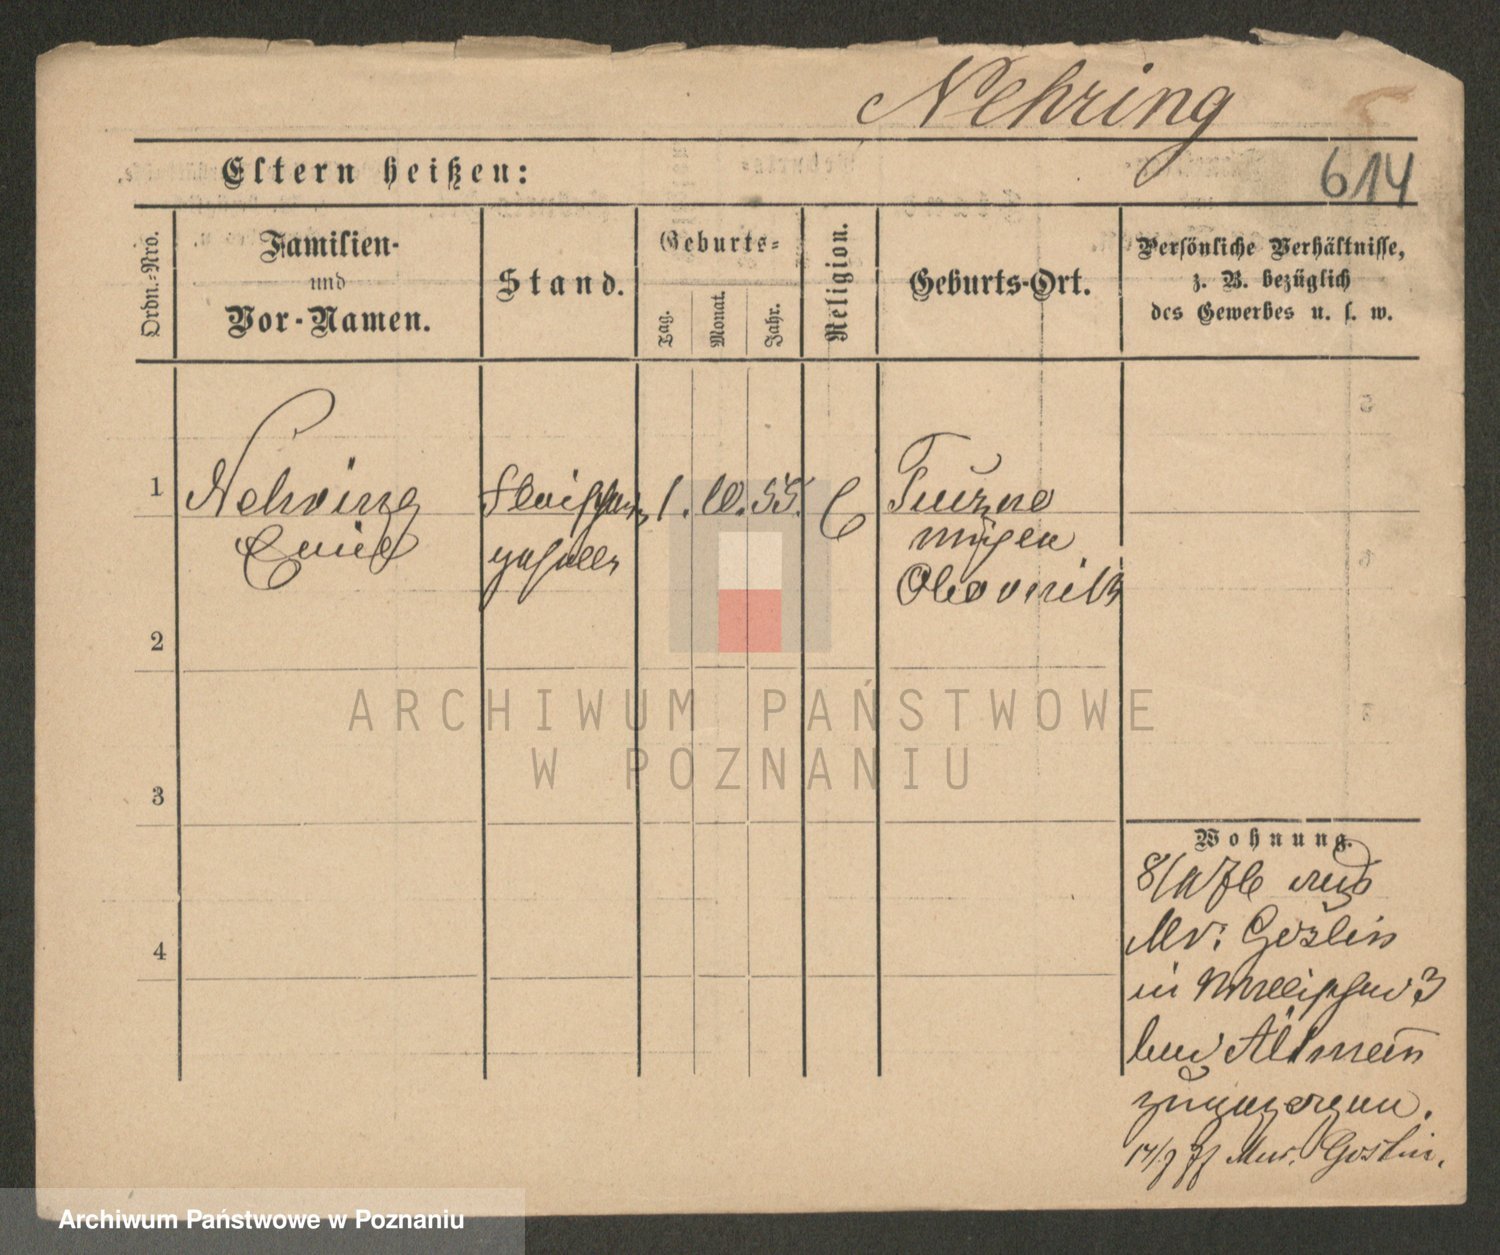 Nehring
614
Eltern heißen:
Ordn.-Nro.
Familien-
und
Vor-Namen.
Stand.
Geburts-
Tag.
Monat.
Jahr.
Religion.
Geburts-Ort.
Persönliche Verhältnisse,
z. B. bezüglich
des Gewerbes u. s. w.
1
Nehring
Emil
Fleischer
geselle
1. 10. 55.
Obornik
2
3
4
Wohnung.
8/11 76 aus
Mur: Goslin
in
bei
zugezogen.
17/9 77 Mur. Goslin.
ARCHIWUM PAŃSTWOWE
W POZNANIU
Archiwum Państwowe w Poznaniu